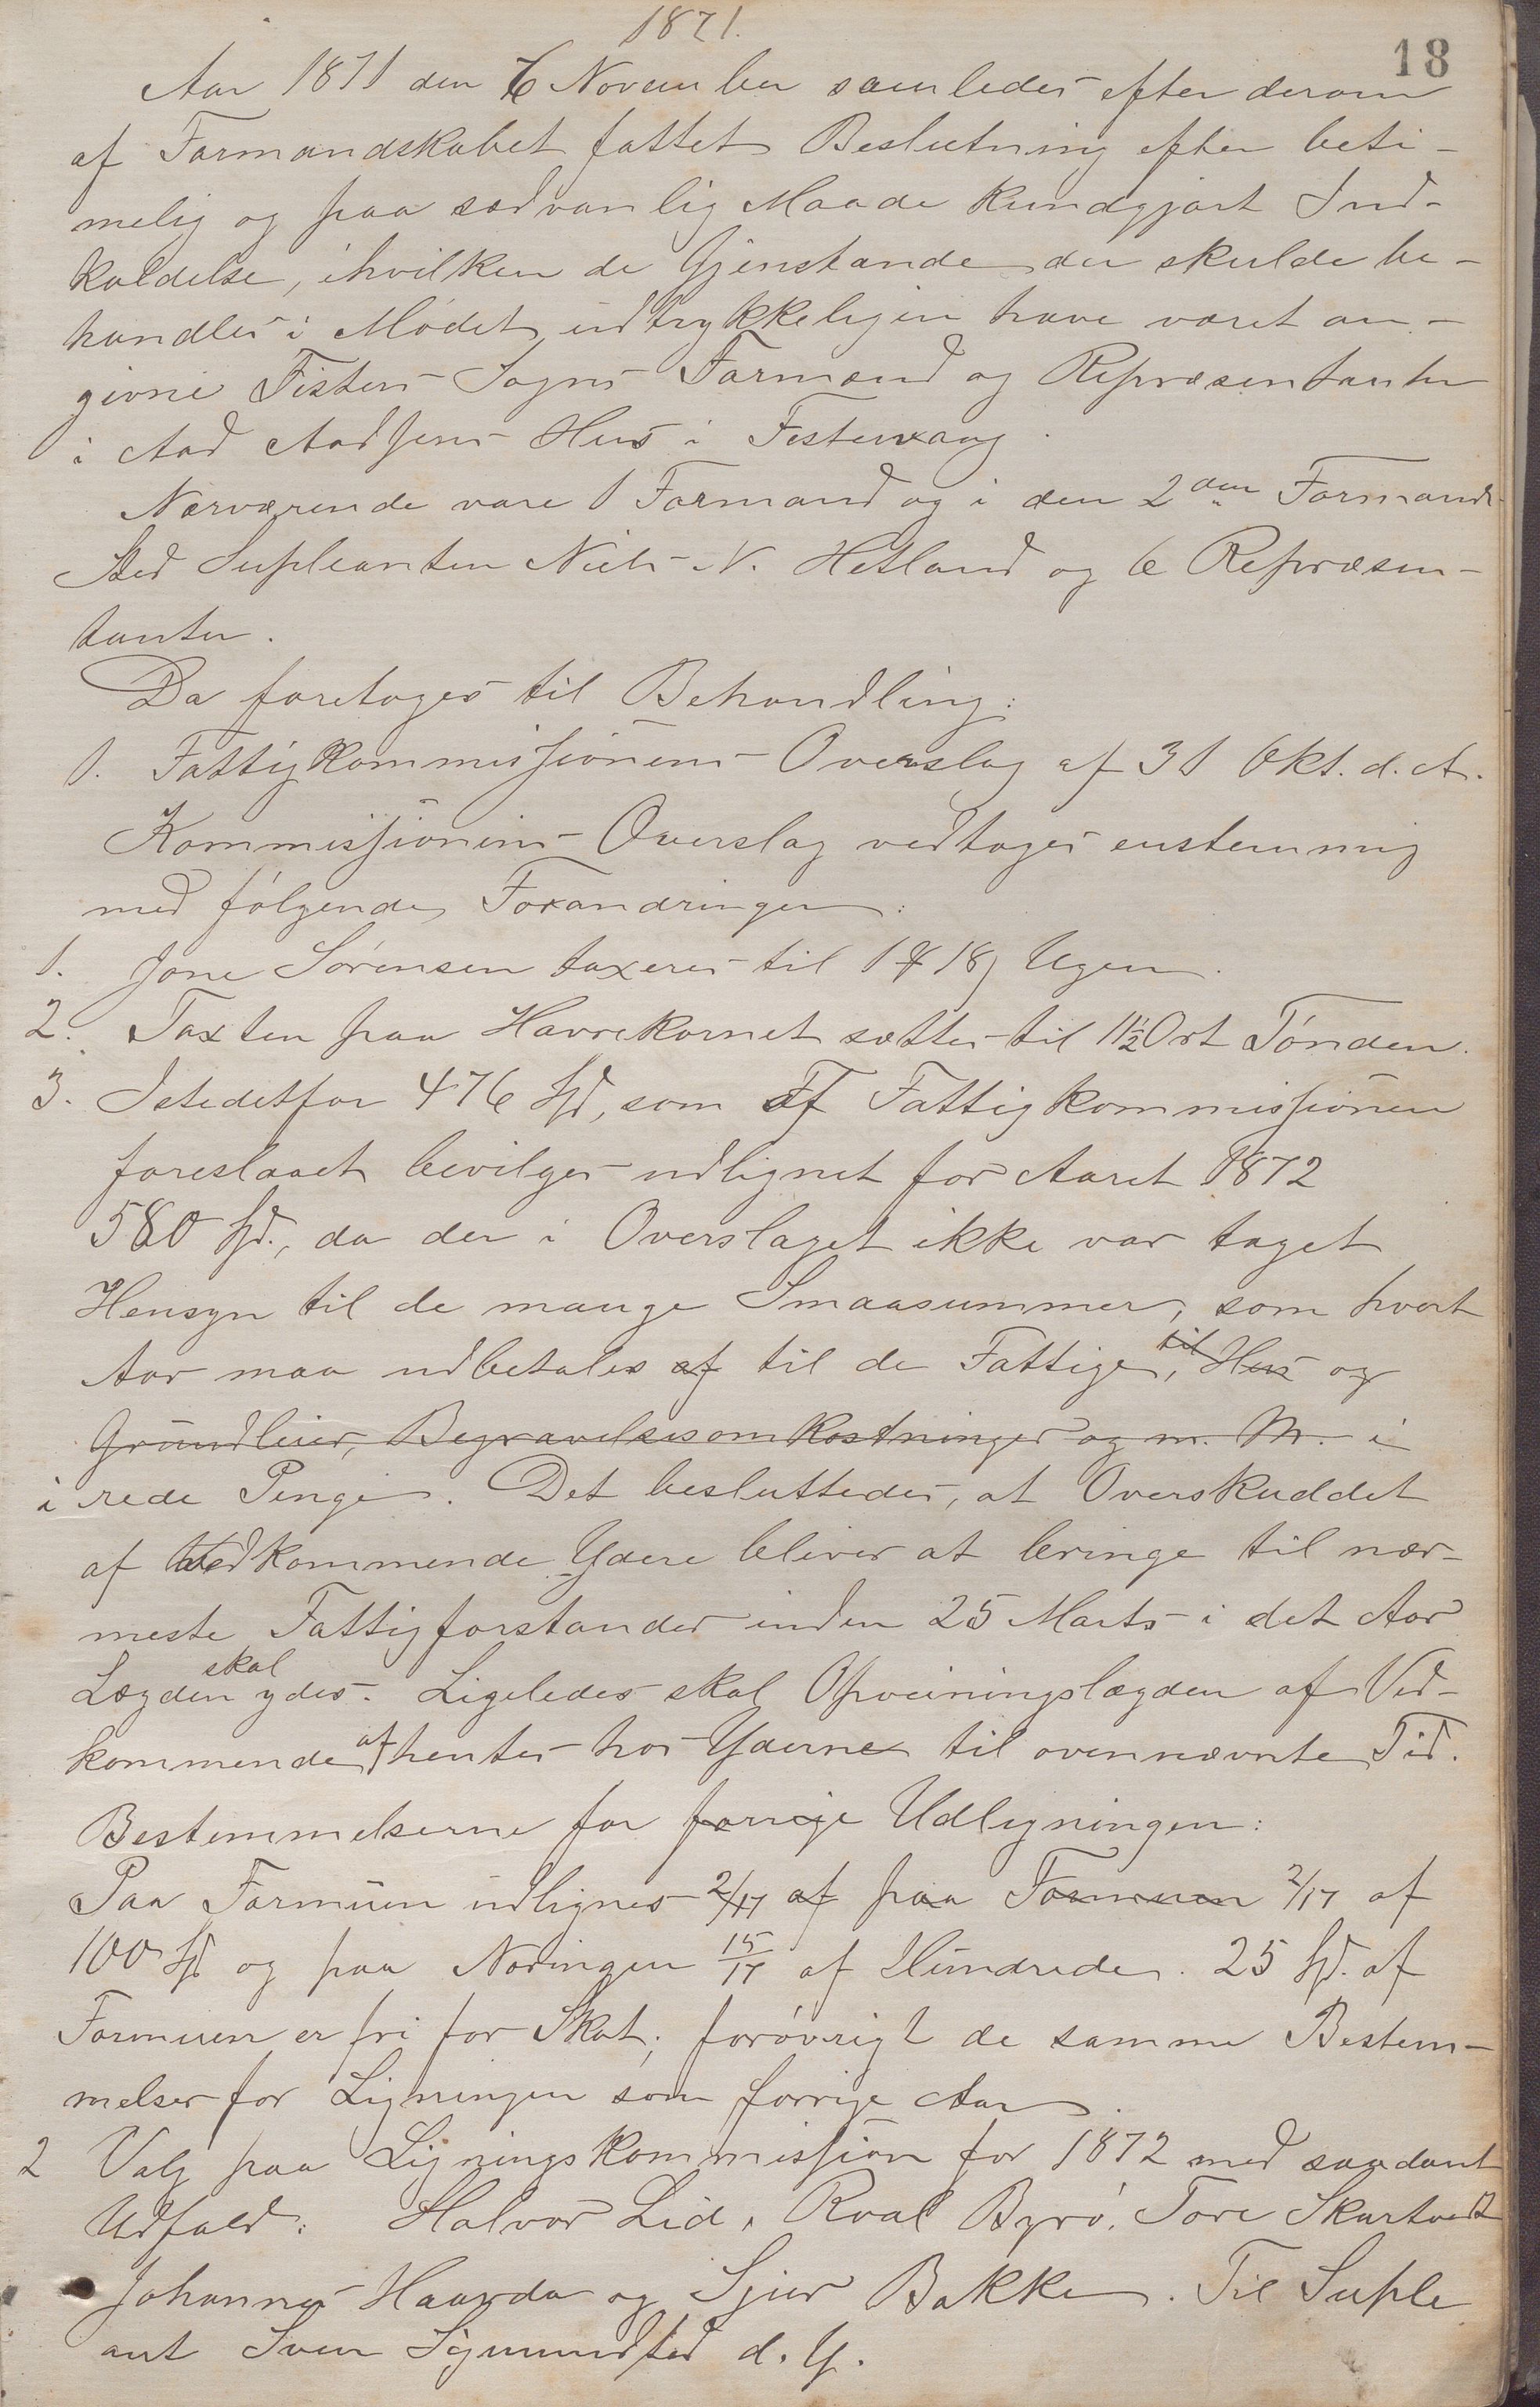 1871.
18
Aar 1871 den 6 November samledes efter derom
af Formandskabet fattet Beslutning efter beti-
melig og paa sædvanlig Maade kundgjort Ind-
kaldelse, i hvilken de Gjenstande der skulde be-
handles i Mødet udtrykkeligen have været an-
givne Fisters Sogns Formænd og Repræsentanter
i Aad Aadsens Hus i Fistervaag.
Nærværende vare 1 Formand og i den 2den Formands
Sted Supleanten Niels N. Hetland og 6 Repræsen-
tanter.
Da foretoges til Behandling:
1. Fattigkommissionens Overslag af 31 Okt. d. A.
Kommissionens Overslag vedtoges enstemmig
med følgende Forandringer:
1. Jone Sørensen taxeres til 1 18 Ugen.
2. Taxten paa Havrekornet sættes til 11½ Ort Tønden.
3. Istedetfor 476 Spd, som Fattigkommissionen
foreslaaet bevilges udlignet for Aaret 1872
580 Spd., da der i Overslaget ikke var taget
Hensyn til de mange Smaasummer, som hvert
Aar maa udbetales af til de Fattige, til Hus og
Grundleier, Begravelsesomkostninger og m. M. i
i rede Penge. Det besluttedes, at Overskuddet
af Vedkommende Ydere bliver at bringe til nær-
meste Fattigforstander inden 25 Marts i det Aar
Lægden skal ydes. Ligeledes skal Opveiningslægden af Ved-
kommende afhentes hos Yderne til ovennævnte Tid.
Bestemmelserne for forrige Udligningen:
Paa Formuen udlignes 2/17 af paa Formuen 2/17 af
100 Spd og paa Næringen 15/17 af Hundrede. 25 Spd. af
Formuen er fri for Skat; forøvrigt de samme Bestem-
melser for Ligningen som forrige Aar.
2 Valg paa Ligningskommission for 1872 med saadant
Udfald: Halvor Lid, Roal Byrø, Tore Skartvedt
Johannes Haarda og Sjur Bakke. Til Suple
ant Sven Sigmundstad d. Y.